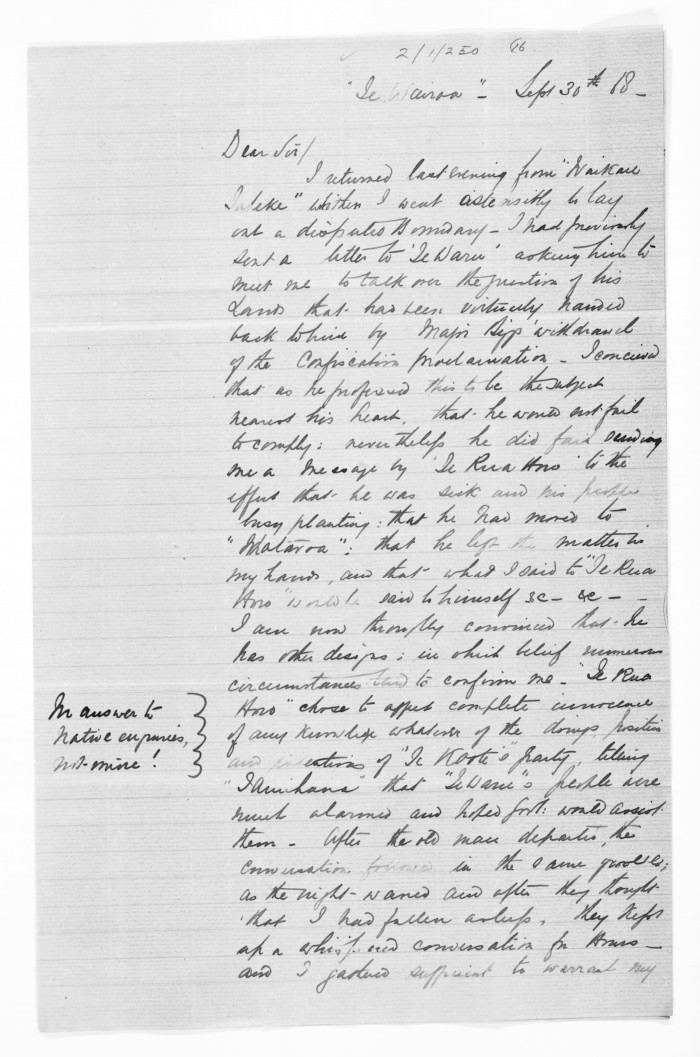 2/1/250 66.
"Te Wairoa" - Sept 30th 68 -
Dear Sir/
I returned last evening from "Waikare
Taheke" whither I went ostensibly to lay
out a disputed Boundary - I had previously
sent a letter to 'Te Waru' asking him to
meet me to talk over the question of his
Lands that had been virtually handed
back to him by Major Bigs' withdrawal
of the Confiscation proclamation - I conceived
that as he professed this to be the subject
nearest his heart, that he would not fail
to comply: nevertheless he did fail sending
me a message by 'Te Rua Horo' to the
effect that he was sick and his people
busy planting: that he had moved to
"Whataroa": that he left the matter in
my hands, and that what I said to "Te Rua
Horo" would be said to himself &c - &c -
I am now thoroughly convinced that he
has other designs: in which belief numerous
circumstances tend to confirm me - "Te Rua
Horo" chose to affect complete innocence
of any knowledge whatever of the doings, position
and intentions of "Te Kooti's" party, telling
"Tamihana" that "Te Waru's" people were
much alarmed and hoped Govt: would assist
them - After the old man departed, the
conversation followed in the same groove;
as the night waned and after they thought
that I had fallen asleep, they kept
up a whispered conversation for hours -
and I gathered sufficient to warrant my
In answer to
Native enquiries,
not mine!